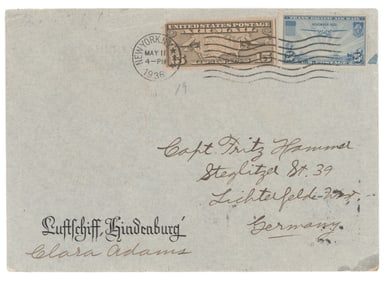 NEW YORK, N.Y.
MAY 11
4-PM
1936
UNITED STATES POSTAGE
AIR MAIL
15
15
25
Capt. Fritz Hammer
Steglitzer St. 39
Lichterfelde-
Germany.
Luftschiff „Hindenburg"
Clara Adams